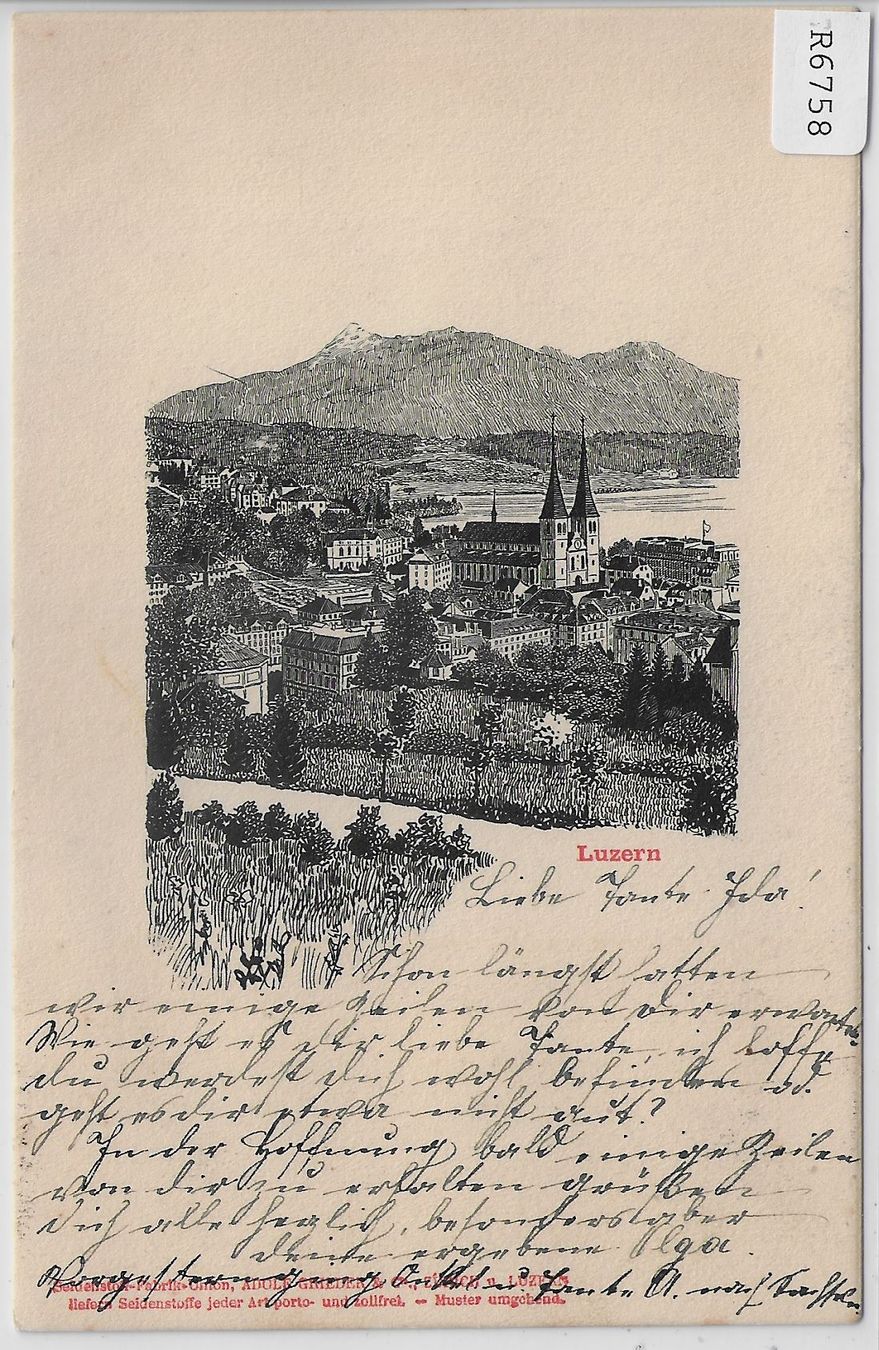 R6758
Luzern
Liebe Tante Ida!
Schon längst hatten
wir einige Zeilen von Dir erwartet.
Wie geht es Dir liebe Tante, ich hoffe
du werdest dich wohl befinden od.
geht es dir etwa nicht gut?
In der Hoffnung bald einige Zeilen
von dir zu erhalten grüßen
dich alle herzlich, besonders aber
deine ergebene Olga.
Vorgestern ging Onkel u. Tante A. nach
Seidenstoff-Fabrik-Union, ADOLF GRIEDER & Cie., ZÜRICH u. LUZERN
liefern Seidenstoffe jeder Art porto- und zollfrei. — Muster umgehend.